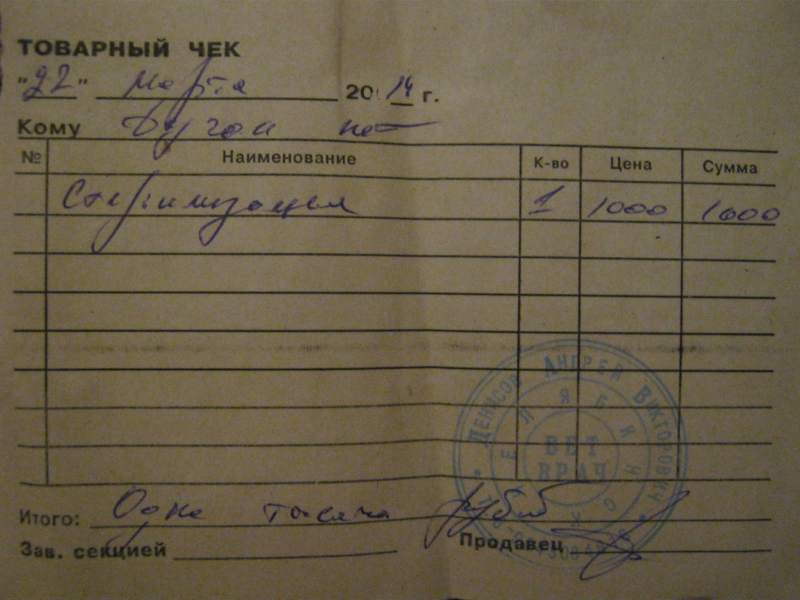 ТОВАРНЫЙ ЧЕК
"22" Марта 2014 г.
Кому
№ Наименование К-во Цена Сумма
Стерилизация 1 1000 1000
Итого: Одна тысяча рублей
Зав. секцией Продавец
Денисов Андрей Викторович
Челябинск
ВЕТ
ВРАЧ